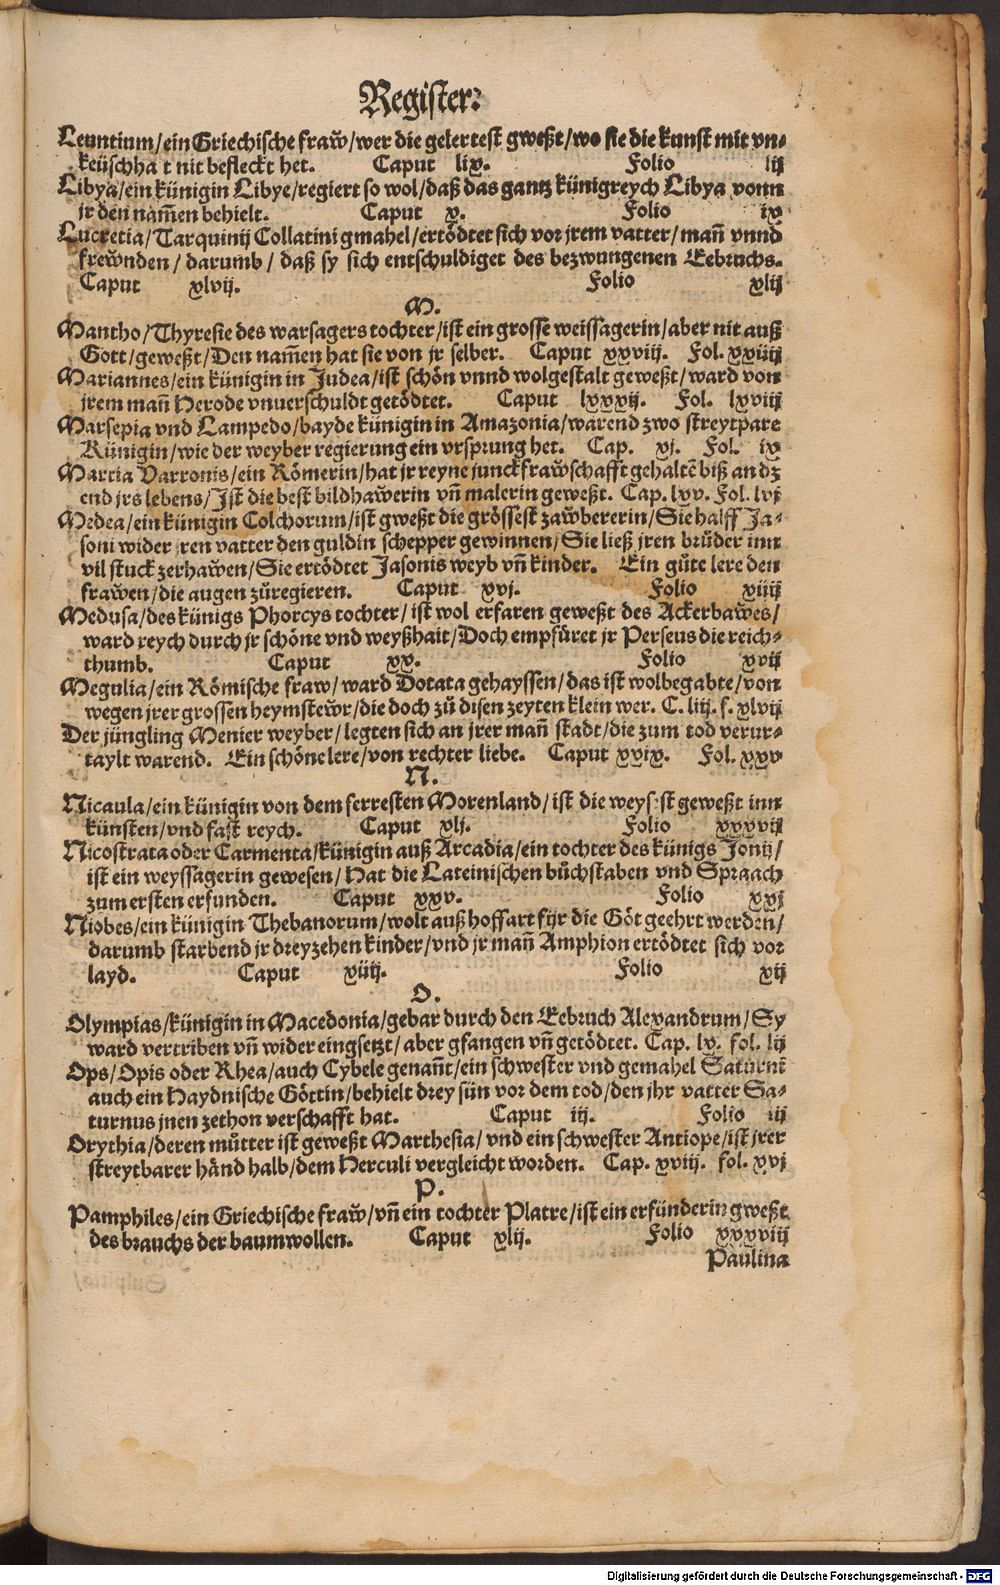 Register.
Leuntium/ein Griechische fraw̃/wer die gelertest gweßt/wo sie die kunst mit vn-
keüschha t nit befleckt het. Caput lix. Folio lij
Libya/ein künigin Libye/regiert so wol/daß das gantz künigreych Libya vonn
jr den nam̃en behielt. Caput x. Folio ix
Lucretia/Tarquinij Collatini gmahel/ertödtet sich vor jrem vatter/mañ vnnd
frew̃nden/darumb/daß sy sich entschuldiget des bezwungenen Eebruchs.
Caput xlvij. Folio xlij
M.
Mantho/Thyresie des warsagers tochter/ist ein grosse weissagerin/aber nit auß
Gott/geweßt/Den nam̃en hat sie von jr selber. Caput xxviij. Fol. xxiiij
Mariannes/ein künigin in Judea/ist schön vnnd wolgestalt geweßt/ward von
jrem mañ Herode vnuerschuldt getödtet. Caput lxxxij. Fol. lxviij
Marsepia vnd Lampedo/bayde künigin in Amazonia/warend zwo streytpare
Künigin/wie der weyber regierung ein vrsprung het. Cap. xj. Fol. ix
Martia Varronis/ein Römerin/hat jr reyne junckfraw̃schafft gehaltẽ biß an dz
end jrs lebens/Jst die best bildhaw̃erin vñ malerin geweßt. Cap. lxv. Fol. lvj
Medea/ein künigin Colchorum/ist gweßt die grössest zaw̃bererin/Sie halff Ja-
soni wider jren vatter den guldin schepper gewinnen/Sie ließ jren brůder inn
vil stuck zerhaw̃en/Sie ertödtet Jasonis weyb vñ kinder. Ein gůte lere den
fraw̃en/die augen zůregieren. Caput xvj. Folio xiiij
Medusa/des künigs Phorcys tochter/ist wol erfaren geweßt des Ackerbaw̃es/
ward reych durch jr schöne vnd weyßhait/Doch empfüret jr Perseus die reich-
thumb. Caput xx. Folio xvij
Megulia/ein Römische fraw/ward Dotata gehayssen/das ist wolbegabte/von
wegen jrer grossen heymstew̃r/die doch zů disen zeyten klein wer. C. liij. f. xlvij
Der jüngling Menier weyber/legten sich an jrer mañ stadt/die zum tod verur-
taylt warend. Ein schöne lere/von rechter liebe. Caput xxix. Fol. xxv
N.
Nicaula/ein künigin von dem ferresten Morenland/ist die weysest geweßt inn
künsten/vnd fast reych. Caput xlj. Folio xxxvij
Nicostrata oder Carmenta/künigin auß Arcadia/ein tochter des künigs Jonij/
ist ein weyssagerin gewesen/Hat die Lateinischen bůchstaben vnd Spraach
zum ersten erfunden. Caput xxv. Folio xxj
Niobes/ein künigin Thebanorum/wolt auß hoffart für die Göt geehrt werden/
darumb starbend jr dreyzehen kinder/vnd jr mañ Amphion ertödtet sich vor
layd. Caput xiiij. Folio xij
O.
Olympias/künigin in Macedonia/gebar durch den Eebruch Alexandrum/Sy
ward vertriben vñ wider eingsetzt/aber gfangen vñ getödtet. Cap. lx. fol. lij
Ops/Opis oder Rhea/auch Cybele genañt/ein schwester vnd gemahel Saturni
auch ein Haydnische Göttin/behielt drey sün vor dem tod/den jhr vatter Sa-
turnus jnen zethon verschafft hat. Caput iij. Folio iij
Orythia/deren můtter ist geweßt Marthesia/vnd ein schwester Antiope/ist jrer
streytbarer händ halb/dem Herculi vergleicht worden. Cap. xviij. fol. xvj
P.
Pamphiles/ein Griechische fraw̃/vñ ein tochter Platre/ist ein erfünderin gweßt
des brauchs der baumwollen. Caput xlij. Folio xxxviij
Paulina
Digitalisierung gefördert durch die Deutsche Forschungsgemeinschaft - DFG